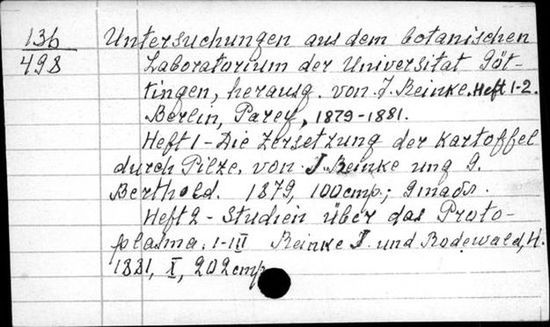 136
498
Untersuchungen aus dem botanischen
Laboratorium der Universität Göt-
tingen, herausg. von J. Reinke. Heft 1-2.
Berlin, Parey, 1879-1881.
Heft 1 - Die Zersetzung der Kartoffel
durch Pilze. von J. Reinke und G.
Berthold. 1879, 100 стр.; 9 табл.
Heft 2 - Studien über das Proto-
plasma. I-III Reinke J. und Rodewald, H.
1881, X, 202 стр.